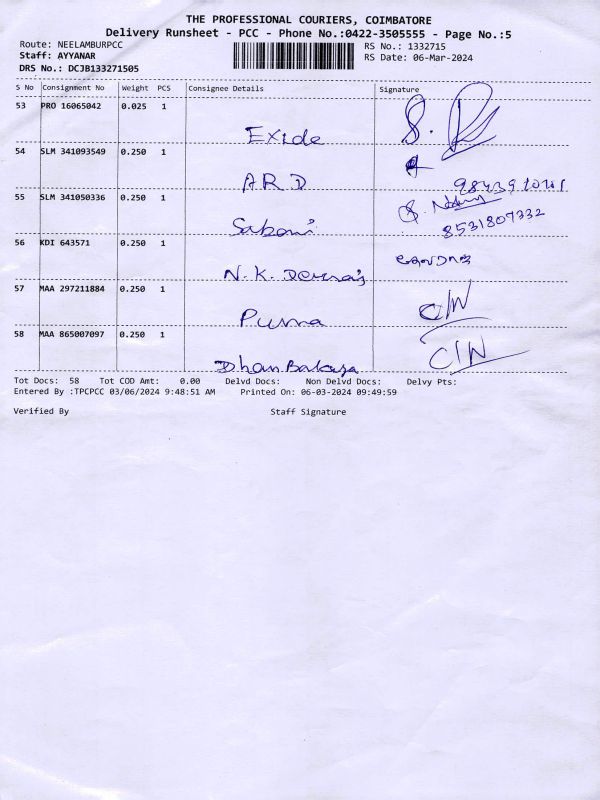 THE PROFESSIONAL COURIERS, COIMBATORE
Delivery Runsheet - PCC - Phone No.:0422-3505555 - Page No.:5
Route: NEELAMBURPCC
Staff: AYYANAR
DRS No.: DCJB133271505
RS No.: 1332715
RS Date: 06-Mar-2024
S No Consignment No Weight PCS Consignee Details Signature
53 PRO 16065042 0.025 1
Exide
54 SLM 341093549 0.250 1
ARD
55 SLM 341050336 0.250 1
8531807332
56 KDI 643571 0.250 1
N.K.
57 MAA 297211884 0.250 1
Purna C/N
58 MAA 865007097 0.250 1
C/N
Tot Docs: 58 Tot COD Amt: 0.00 Delvd Docs: Non Delvd Docs: Delvy Pts:
Entered By :TPCPCC 03/06/2024 9:48:51 AM Printed On: 06-03-2024 09:49:59
Verified By Staff Signature